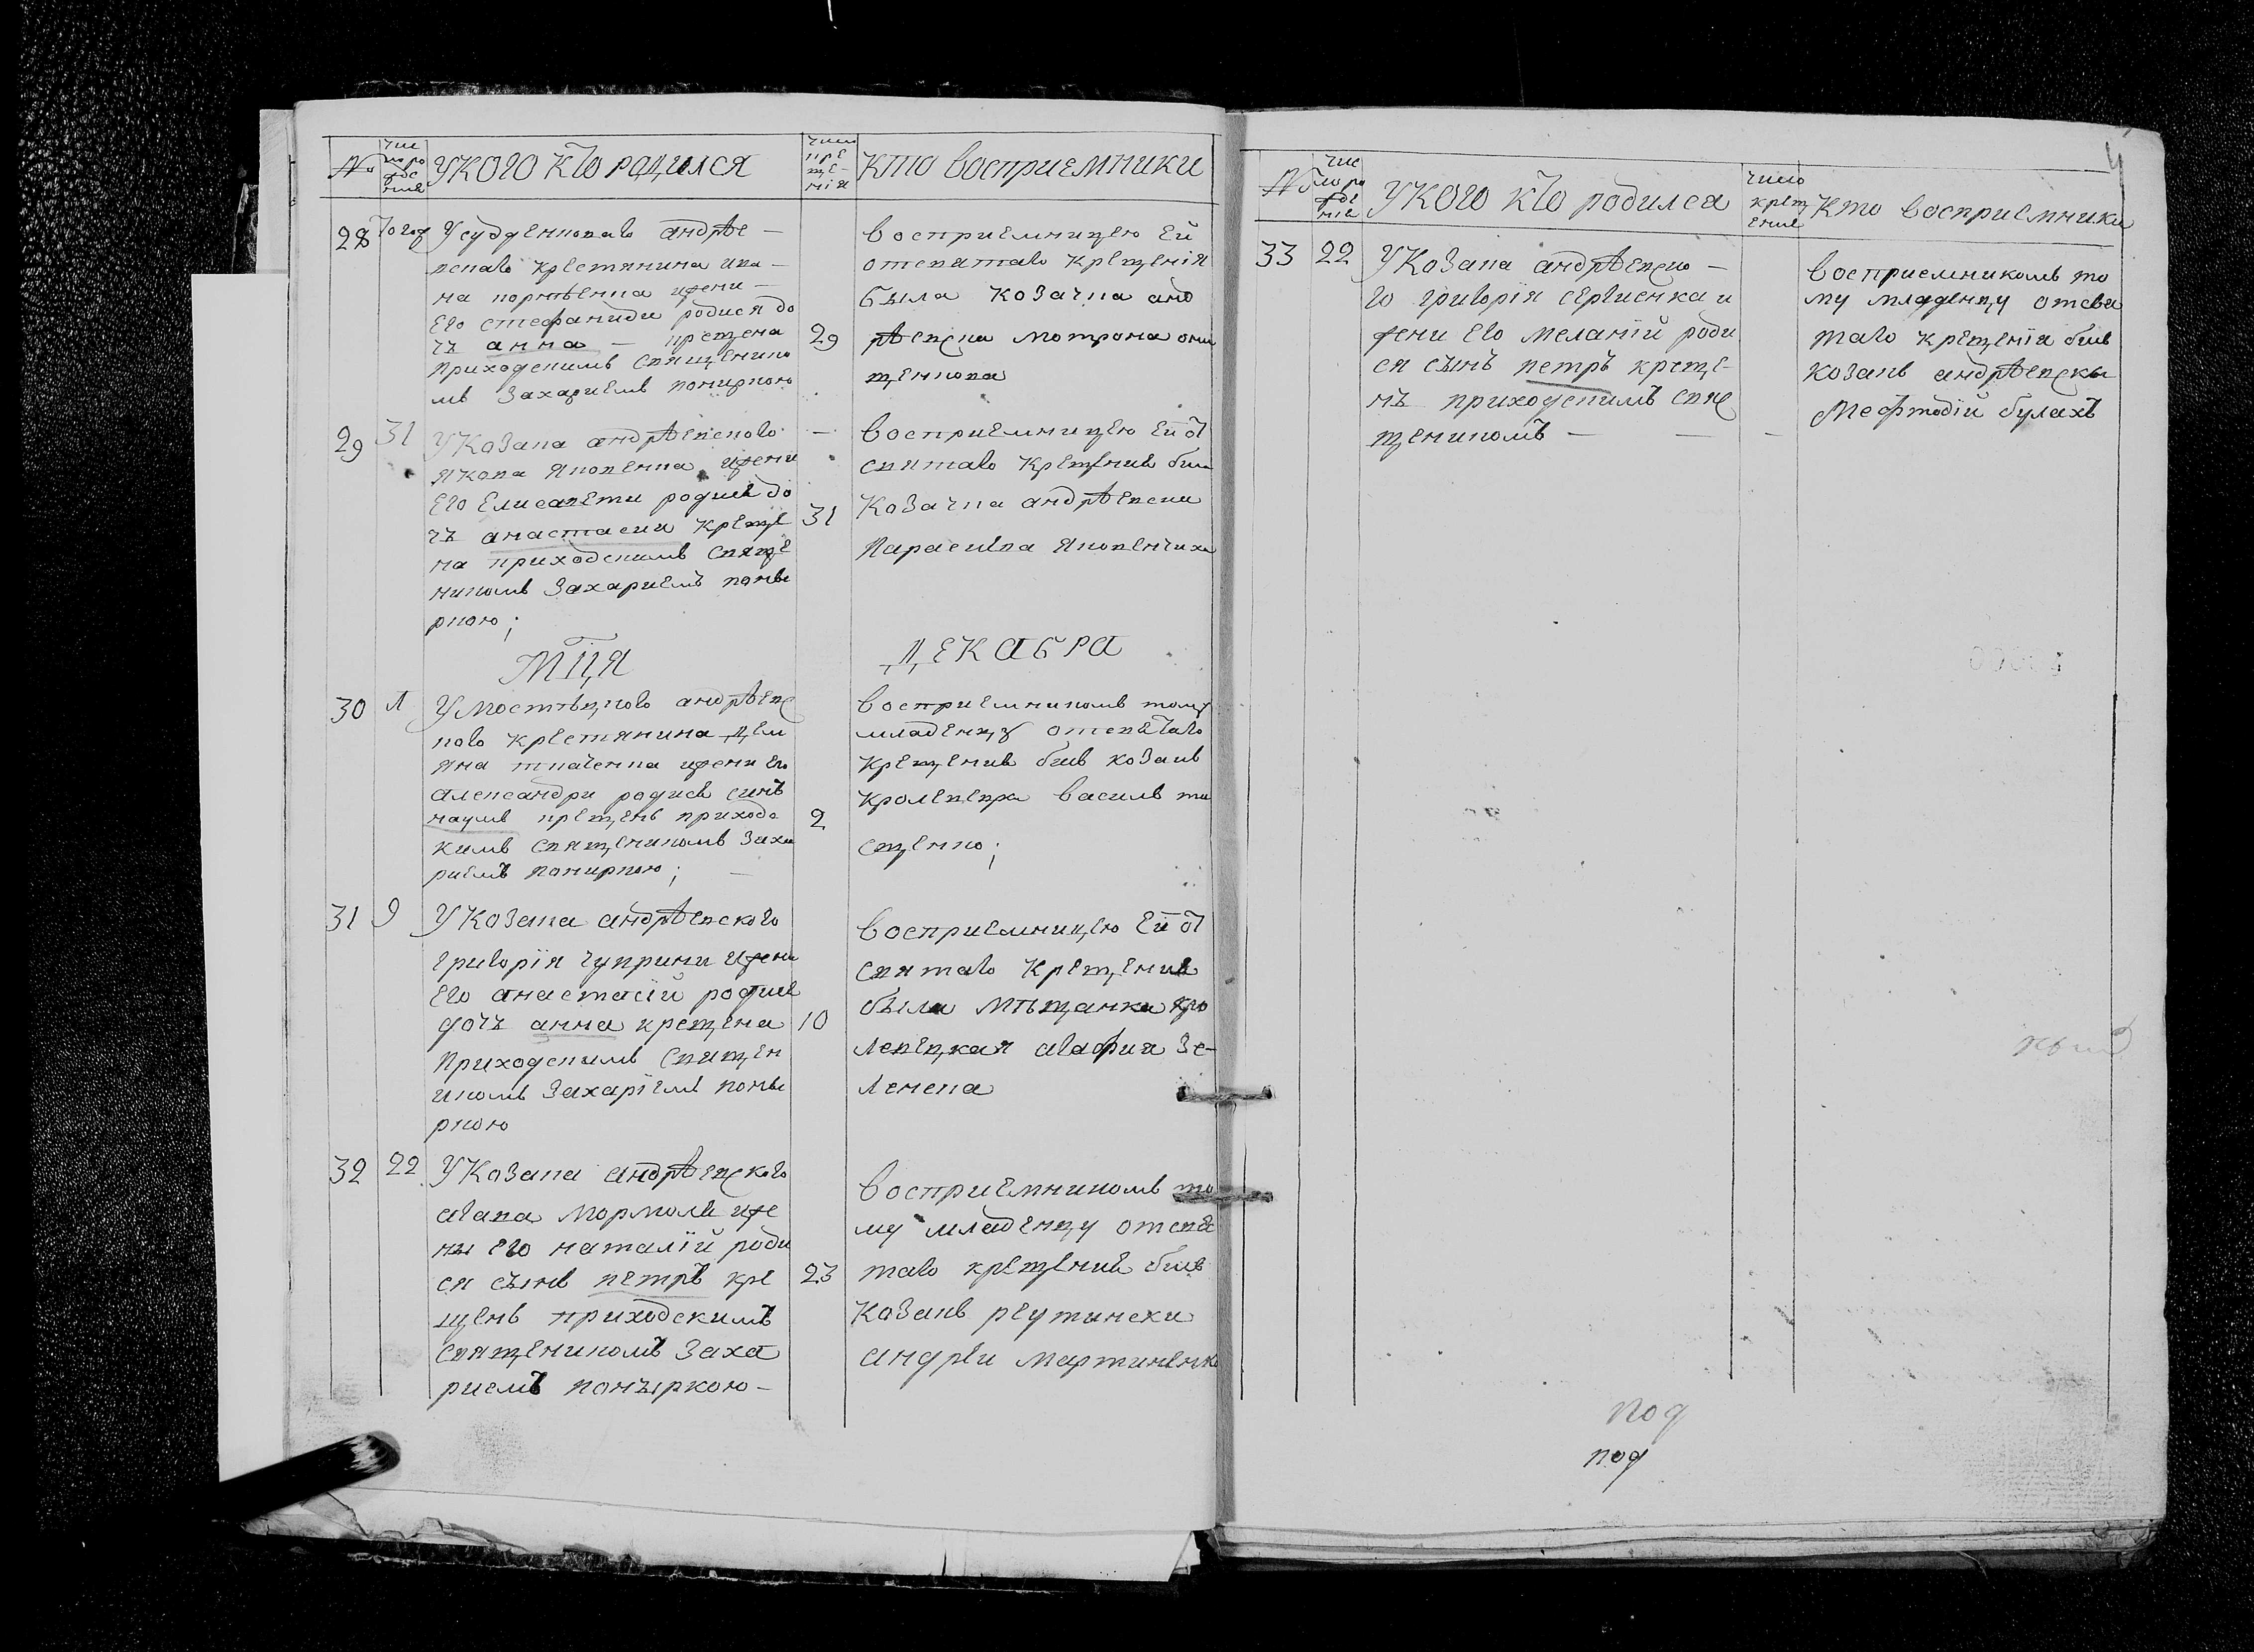 №
чис
ло ро
жде
ние
У кого кто родился
число
кре
ще-
нія
кто восприемники
28
Усудденковаго андрѣе –
вскаго крестянина ива –
на корнѣенка ижени –
его стефаниди родися до
чъ анна – крещена
приходскимъ священико
мъ Захариемъ пониркою
29
восприемницею ей
отсвятаго крещенія
была козачка анд
рѣевска мотрона они
щенкова
29
31
У Козака андрѣевскаго
якова яковенка ижени
его Елисавети родися до
чъ анастасия креще
на приходскимъ свяще
никомъ Захариемъ поны
ркою;
31
восприемницею ей от
святаго крещения била
козачка андрѣевски
Параскива Яковенчиха
мця
декабра
30
1
У мостѣцкого андрѣевс
кого крестянина Дем
яна ткаченка ижени его
александри родися синъ
наумъ крещенъ приходс
кимъ священикомъ Заха
риемъ пониркою;
2
восприемникомъ тому
младенцу отсвятаго
крещения бивъ козакъ
кролевецки василь ти
сщенко;
31
9
У Козака андрѣевского
григорія чуприни ижени
его анастасій родися
дочъ анна крещена
приходскимъ священ
икомъ Захаріемъ поны
ркою
10
восприемницею ей от
святаго крещения
была мѣщанка кро
левецкая агафия Зе-
ленска
32
22
У Козака андрѣевского
агапа мормоля иже
ны его наталій роди
ся сынъ петръ кре
щенъ приходскимъ
священикомъ Заха
риемъ поныркою –
23
восприемникомъ то
му младенцу отсвя
таго крещения бивъ
козакъ реутински
андрѣи мартиненко
4
№
чис
ло ро
жде
ние
У кого кто родился
число
крещ
ения
Кто восприемники
33
22
У Козака андрѣевско –
го григорія сергиенка и
жени его меланій роди
ся сынъ петръ креще-
нъ приходскимъ свяс
щеникомъ –
восприемникомъ то
му младенцу отсвя
таго крещенія бивъ
козакъ андрѣевскы
Мефтодій булахъ
под
под